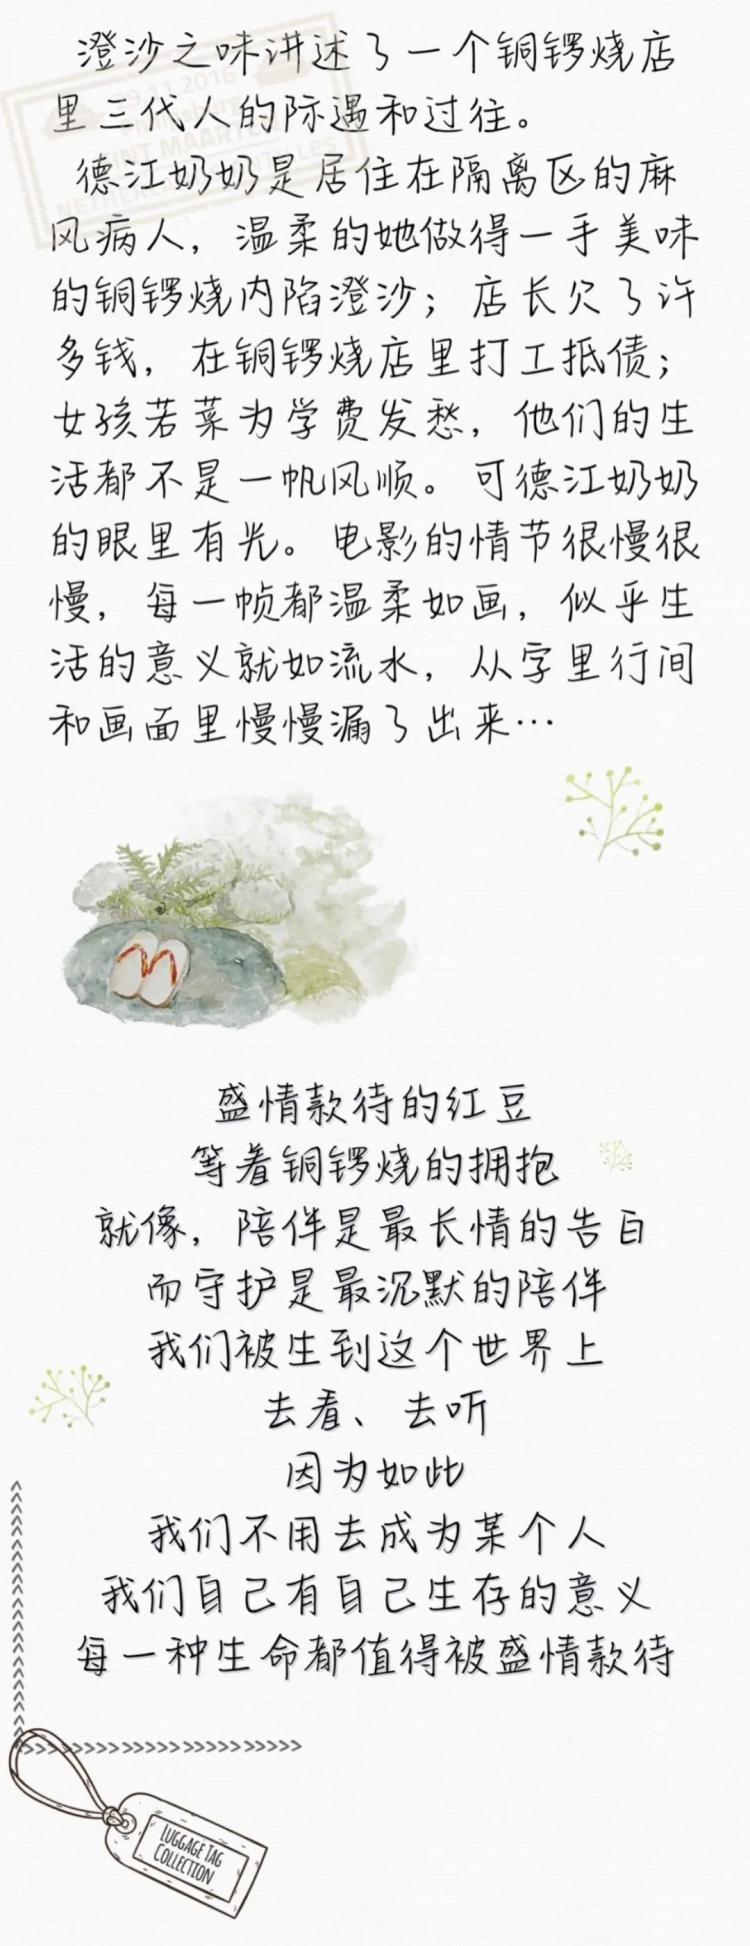 澄沙之味讲述了一个铜锣烧店
里三代人的际遇和过往。
德江奶奶是居住在隔离区的麻
风病人，温柔的她做得一手美味
的铜锣烧内陷澄沙；店长欠了许
多钱，在铜锣烧店里打工抵债；
女孩若菜为学费发愁，他们的生
活都不是一帆风顺。可德江奶奶
的眼里有光。电影的情节很慢很
慢，每一帧都温柔如画，似乎生
活的意义就如流水，从字里行间
和画面里慢慢漏了出来…
盛情款待的红豆
等着铜锣烧的拥抱
就像，陪伴是最长情的告白
而守护是最沉默的陪伴
我们被生到这个世界上
去看、去听
因为如此
我们不用去成为某个人
我们自己有自己生存的意义
每一种生命都值得被盛情款待
LUGGAGE TAG
COLLECTION